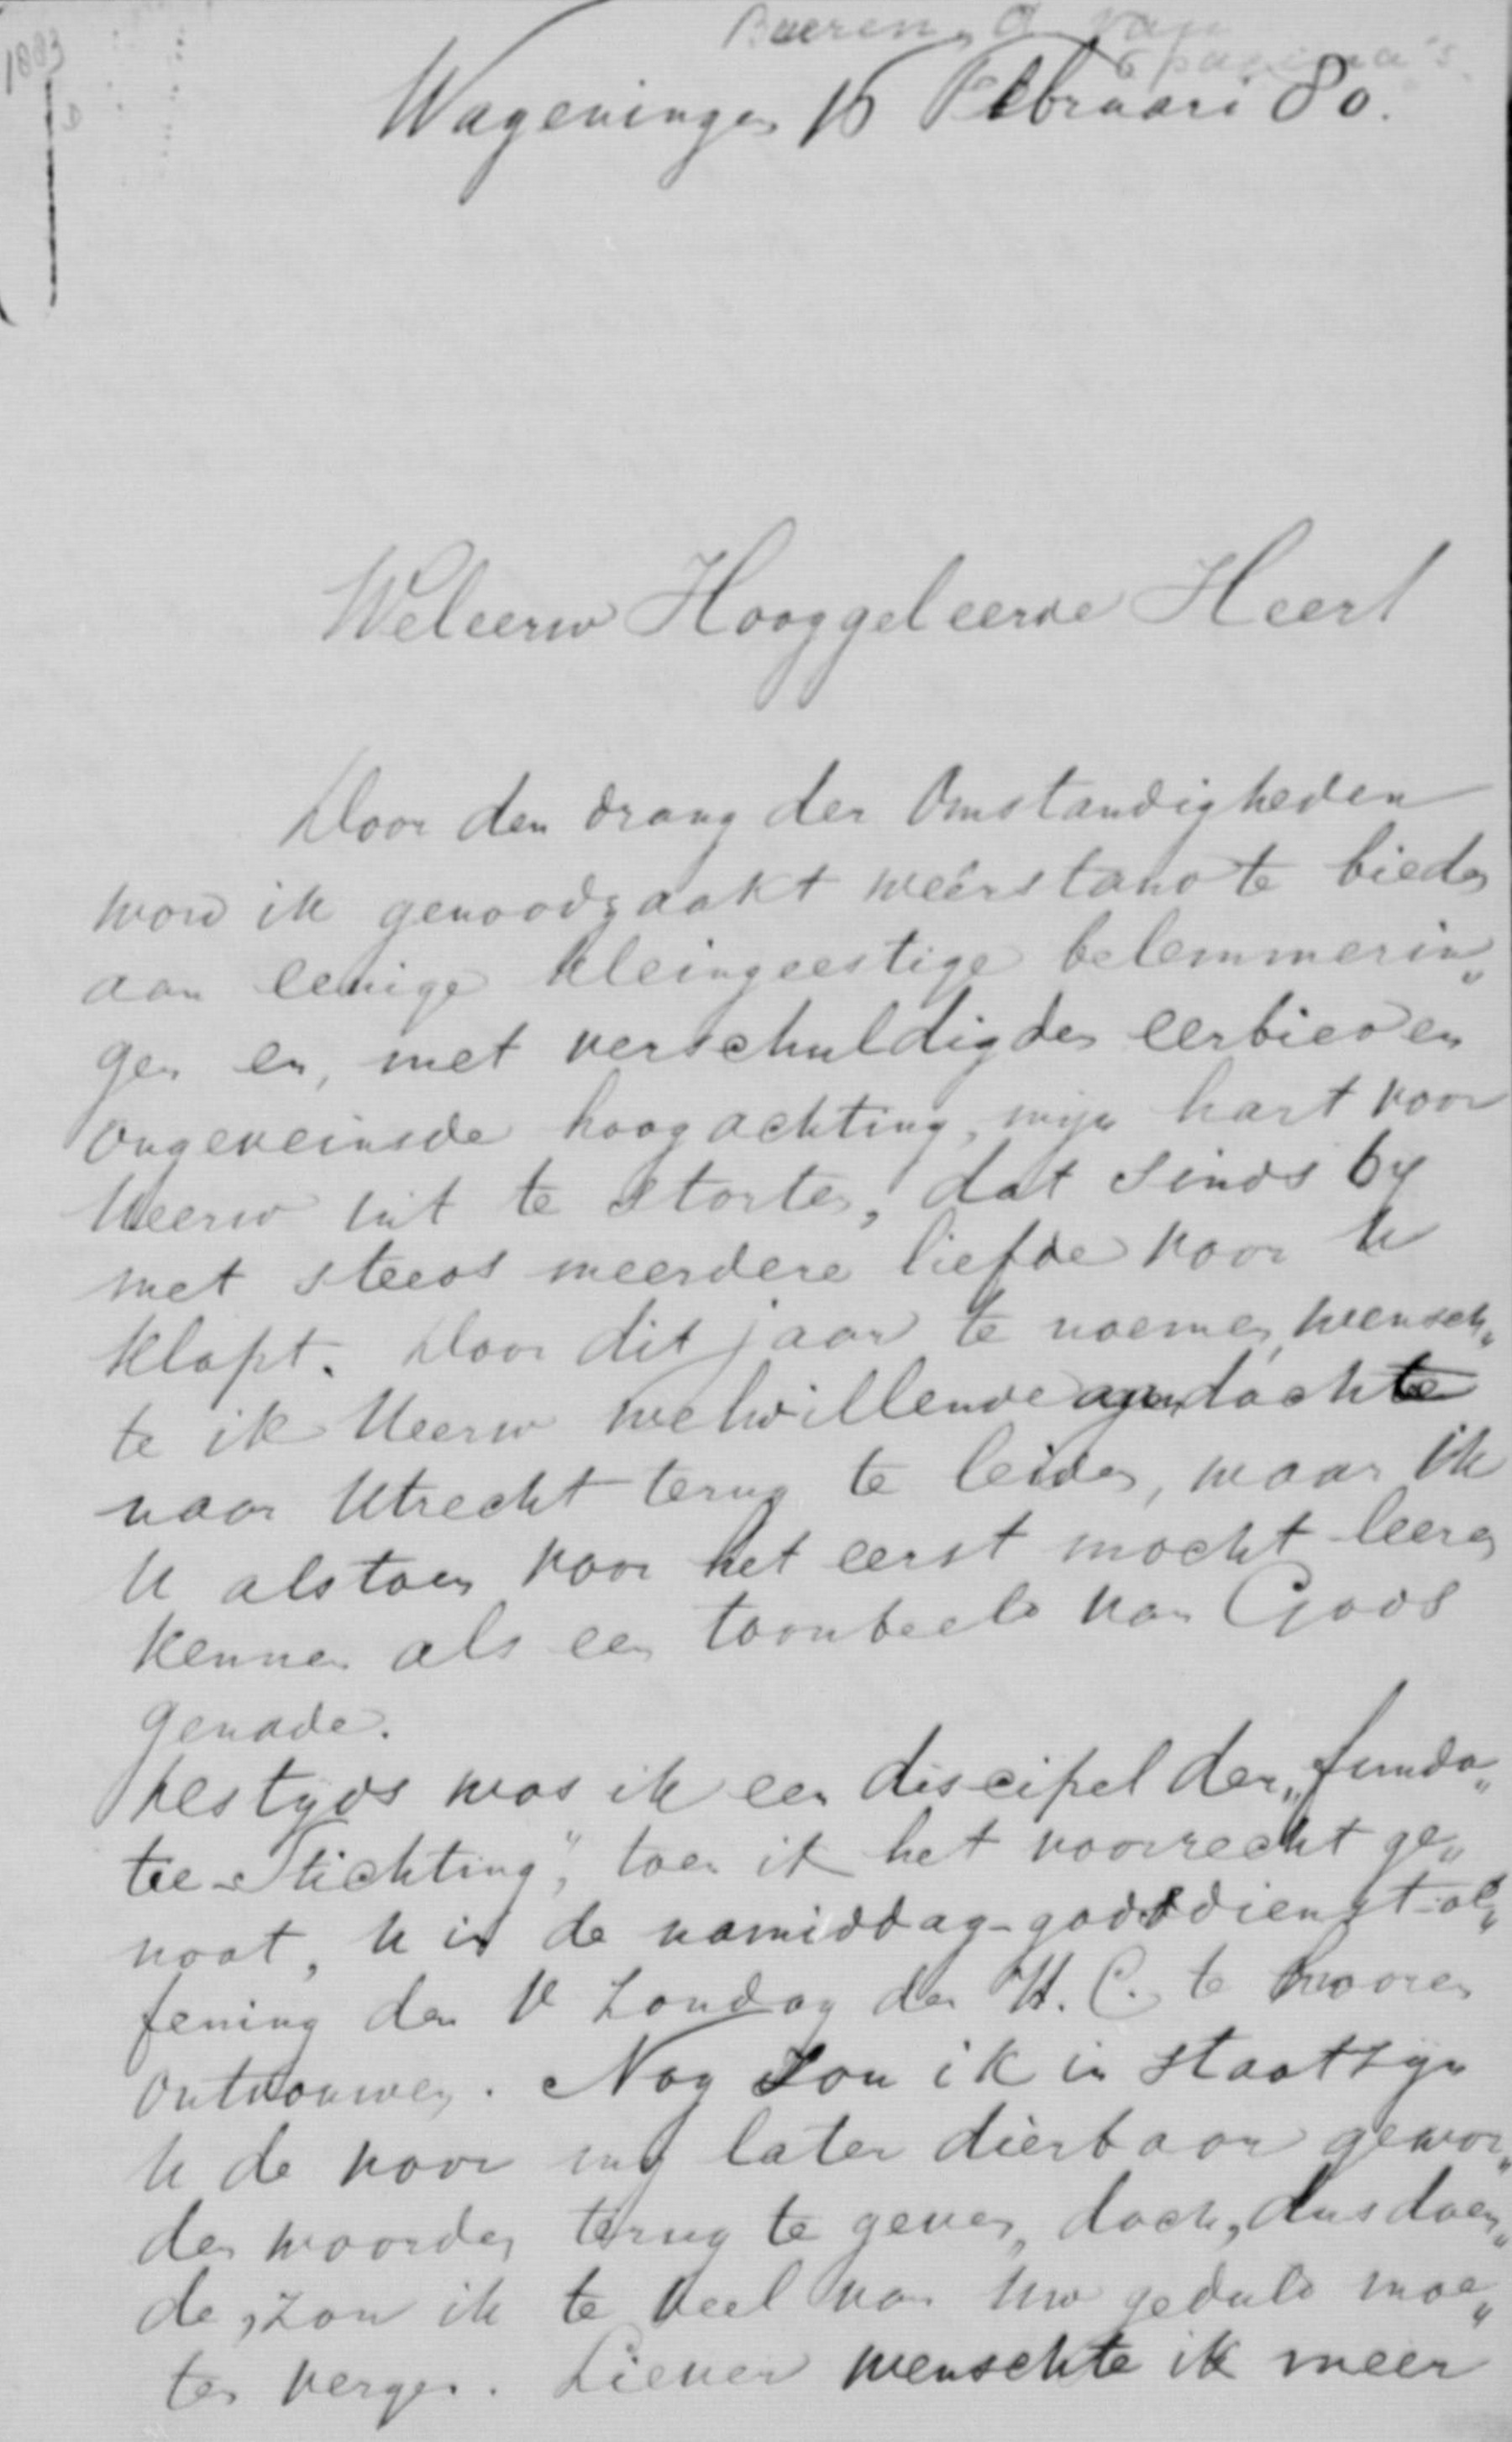 1883
D
Bueren, G van
6 pagina's
Wageningen 16 Februari 80.
Weleerw Hooggeleerde Heer!
Door den drang der Omstandigheden
word ik genoodzaakt weêrstand te bieden
aan eenige kleingeestige belemmerin„
gen en, met verschuldigden eerbied en
ongeveinsde hoogachting, mijn hart voor
Ueerw uit te storten, dat sinds 64
met steeds meerdere liefde voor U
klopt. Door dit jaar te noemen, wensch„
te ik Ueerw welwillende aandacht
naar Utrecht terug te leiden, waar ik
U alstoen voor het eerst mocht leeren
kennen als een toonbeeld van Gods
genade.
Destyds was ik een discipel der „funda„
tie-Stichting", toen ik het voorrecht ge„
noot, U in de namiddag-godsdienst-oe„
fening den V Zondag der H. C. te hooren
ontvouwen. Nog zou ik in staat zyn
U de voor my later dierbaar gewor„
den woorden terug te geven, doch, dusdoen„
de, zou ik te veel van Uw geduld moe„
ten vergen. Liever wenschte ik meer